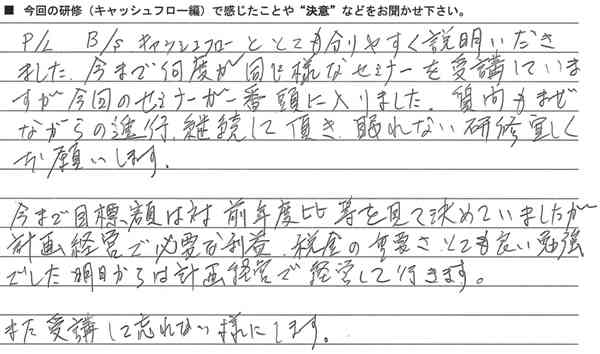 ■ 今回の研修（キャッシュフロー編）で感じたことや“決意”などをお聞かせ下さい。
P/L B/S キャッシュフローととても分りやすく説明いただき
ました。今まで何度か同じ様なセミナーを受講していま
すが今回のセミナーが一番頭に入りました。質問もまぜ
ながらの進行、継続して頂き、眠れない研修宜しく
お願いします。
今まで目標額は対前年度比等を見て決めていましたが
計画経営で必要な利益、税金の重要さ、とても良い勉強
でした 明日からは計画経営で経営して行きます。
また受講して忘れない様にします。